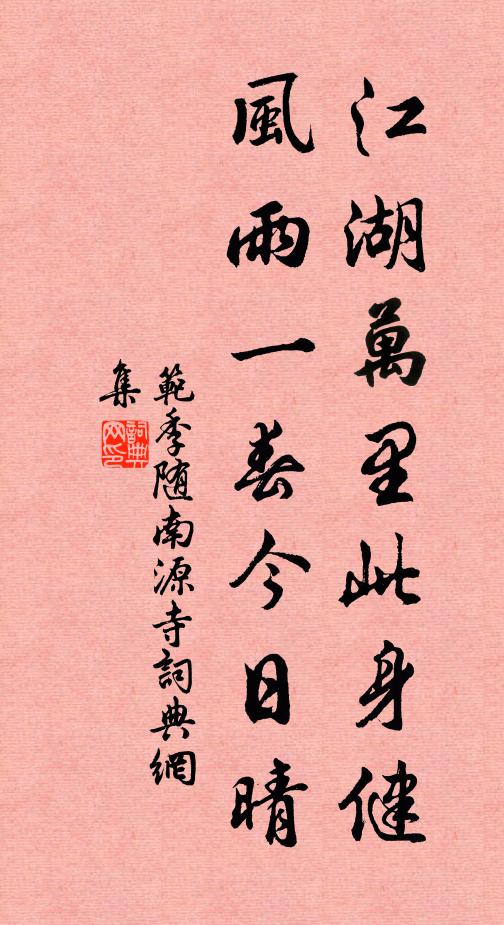 江湖萬里此身健
風雨一春今日晴
範季随南源寺詞典網
集
詞典
网印